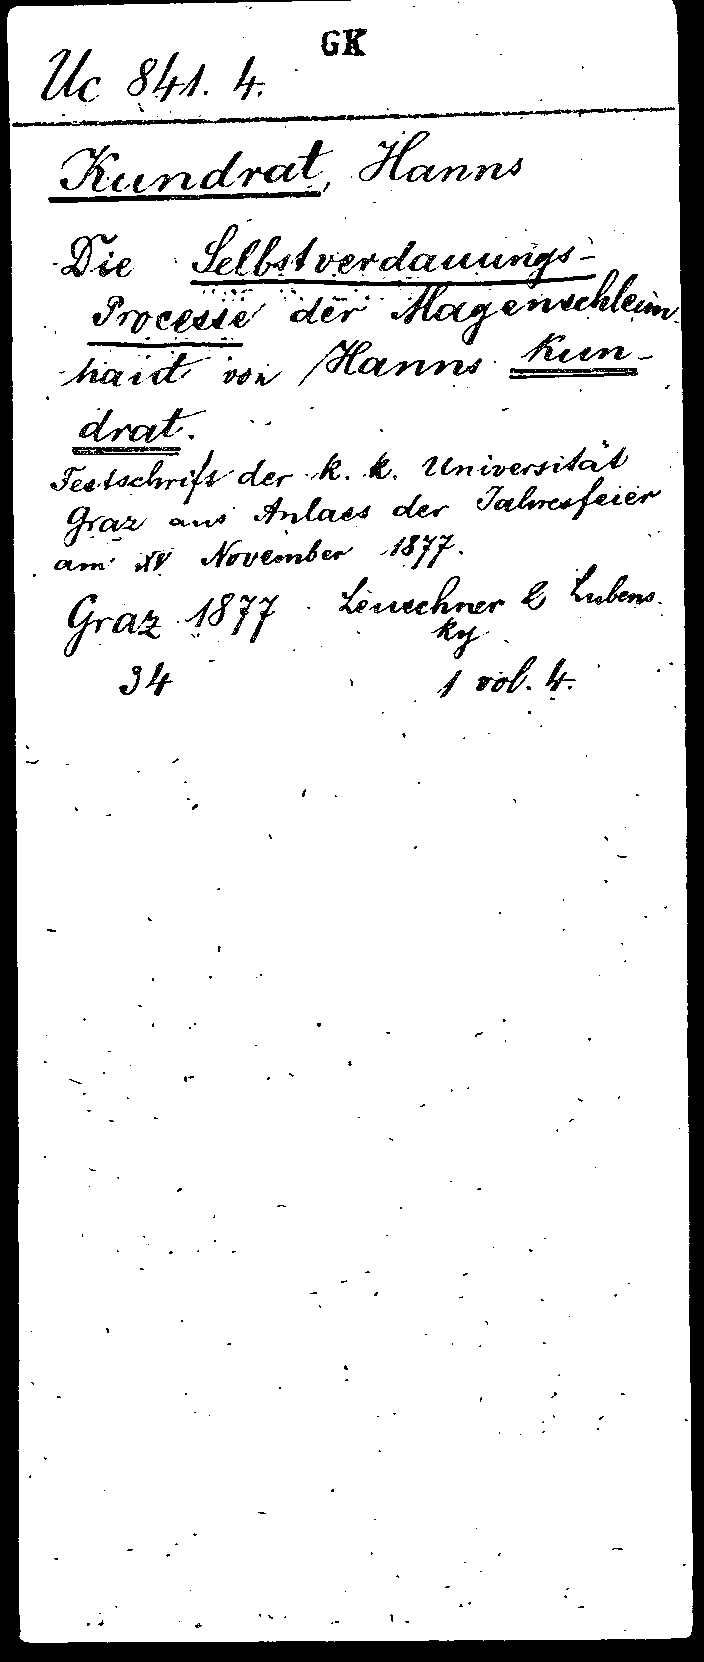 GK
Uc 841. 4.
Kundrat, Hanns
Die Selbstverdauungs-
Processe der Magenschleim
haut von Hanns Kun-
drat.
Festschrift der k. k. Universität
Graz aus Anlass der Jahresfeier
am XV November 1877.
Graz 1877 Leuschner & Lubens
ky
34 1 vol. 4.